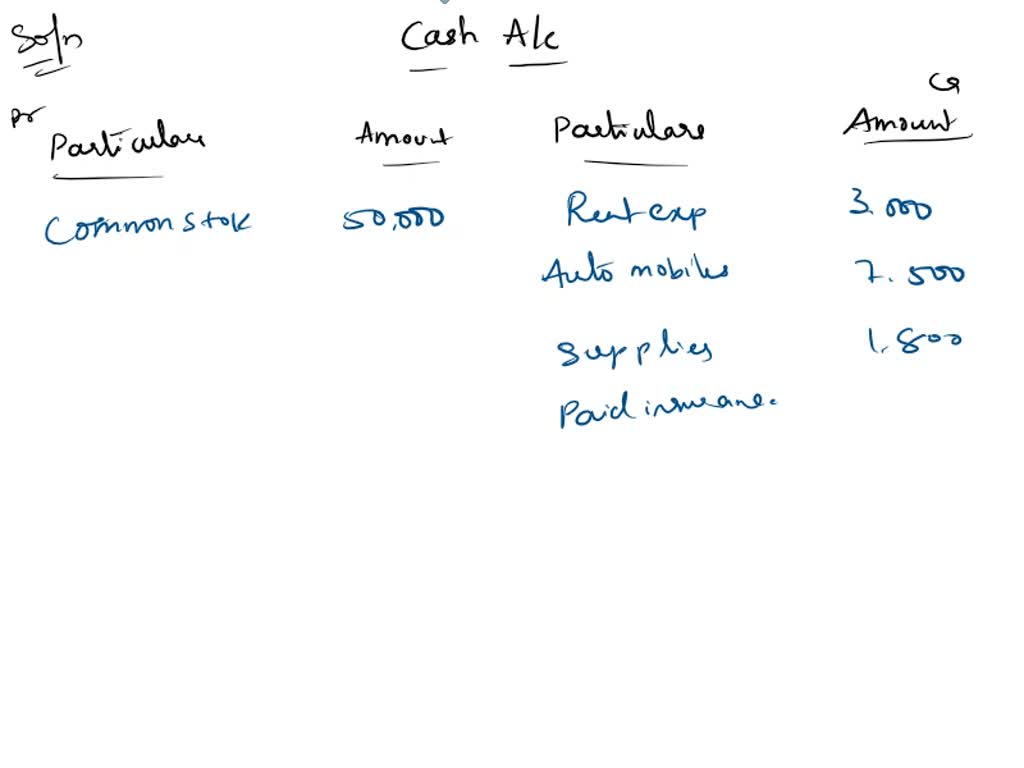 Soln
Cash A/c
Dr Cr
Particulars Amount Particulars Amount
Common stok 50,000 Rent exp 3.000
Auto mobiles 7.500
Supplies 1.800
Paid insurane.